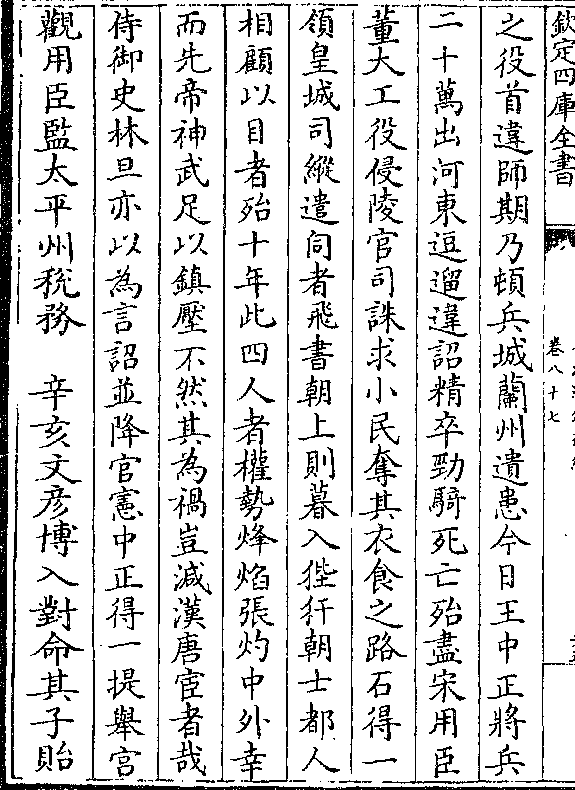 欽定四庫全書
卷八十七
之役首違師期乃頓兵城蘭州遺患今日王中正將兵
二十萬出河東逗遛違詔精卒勁騎死亡殆盡宋用臣
董大工役侵陵官司誅求小民奪其衣食之路石得一
領皇城司縱遣伺者飛書朝上則暮入狴犴朝士都人
相顧以目者殆十年此四人者權勢烽焰張灼中外幸
而先帝神武足以鎮壓不然其為禍豈減漢唐宦者哉
侍御史林旦亦以為言詔並降官憲中正得一提舉宮
觀用臣監太平州稅務　辛亥文彥博入對命其子貽